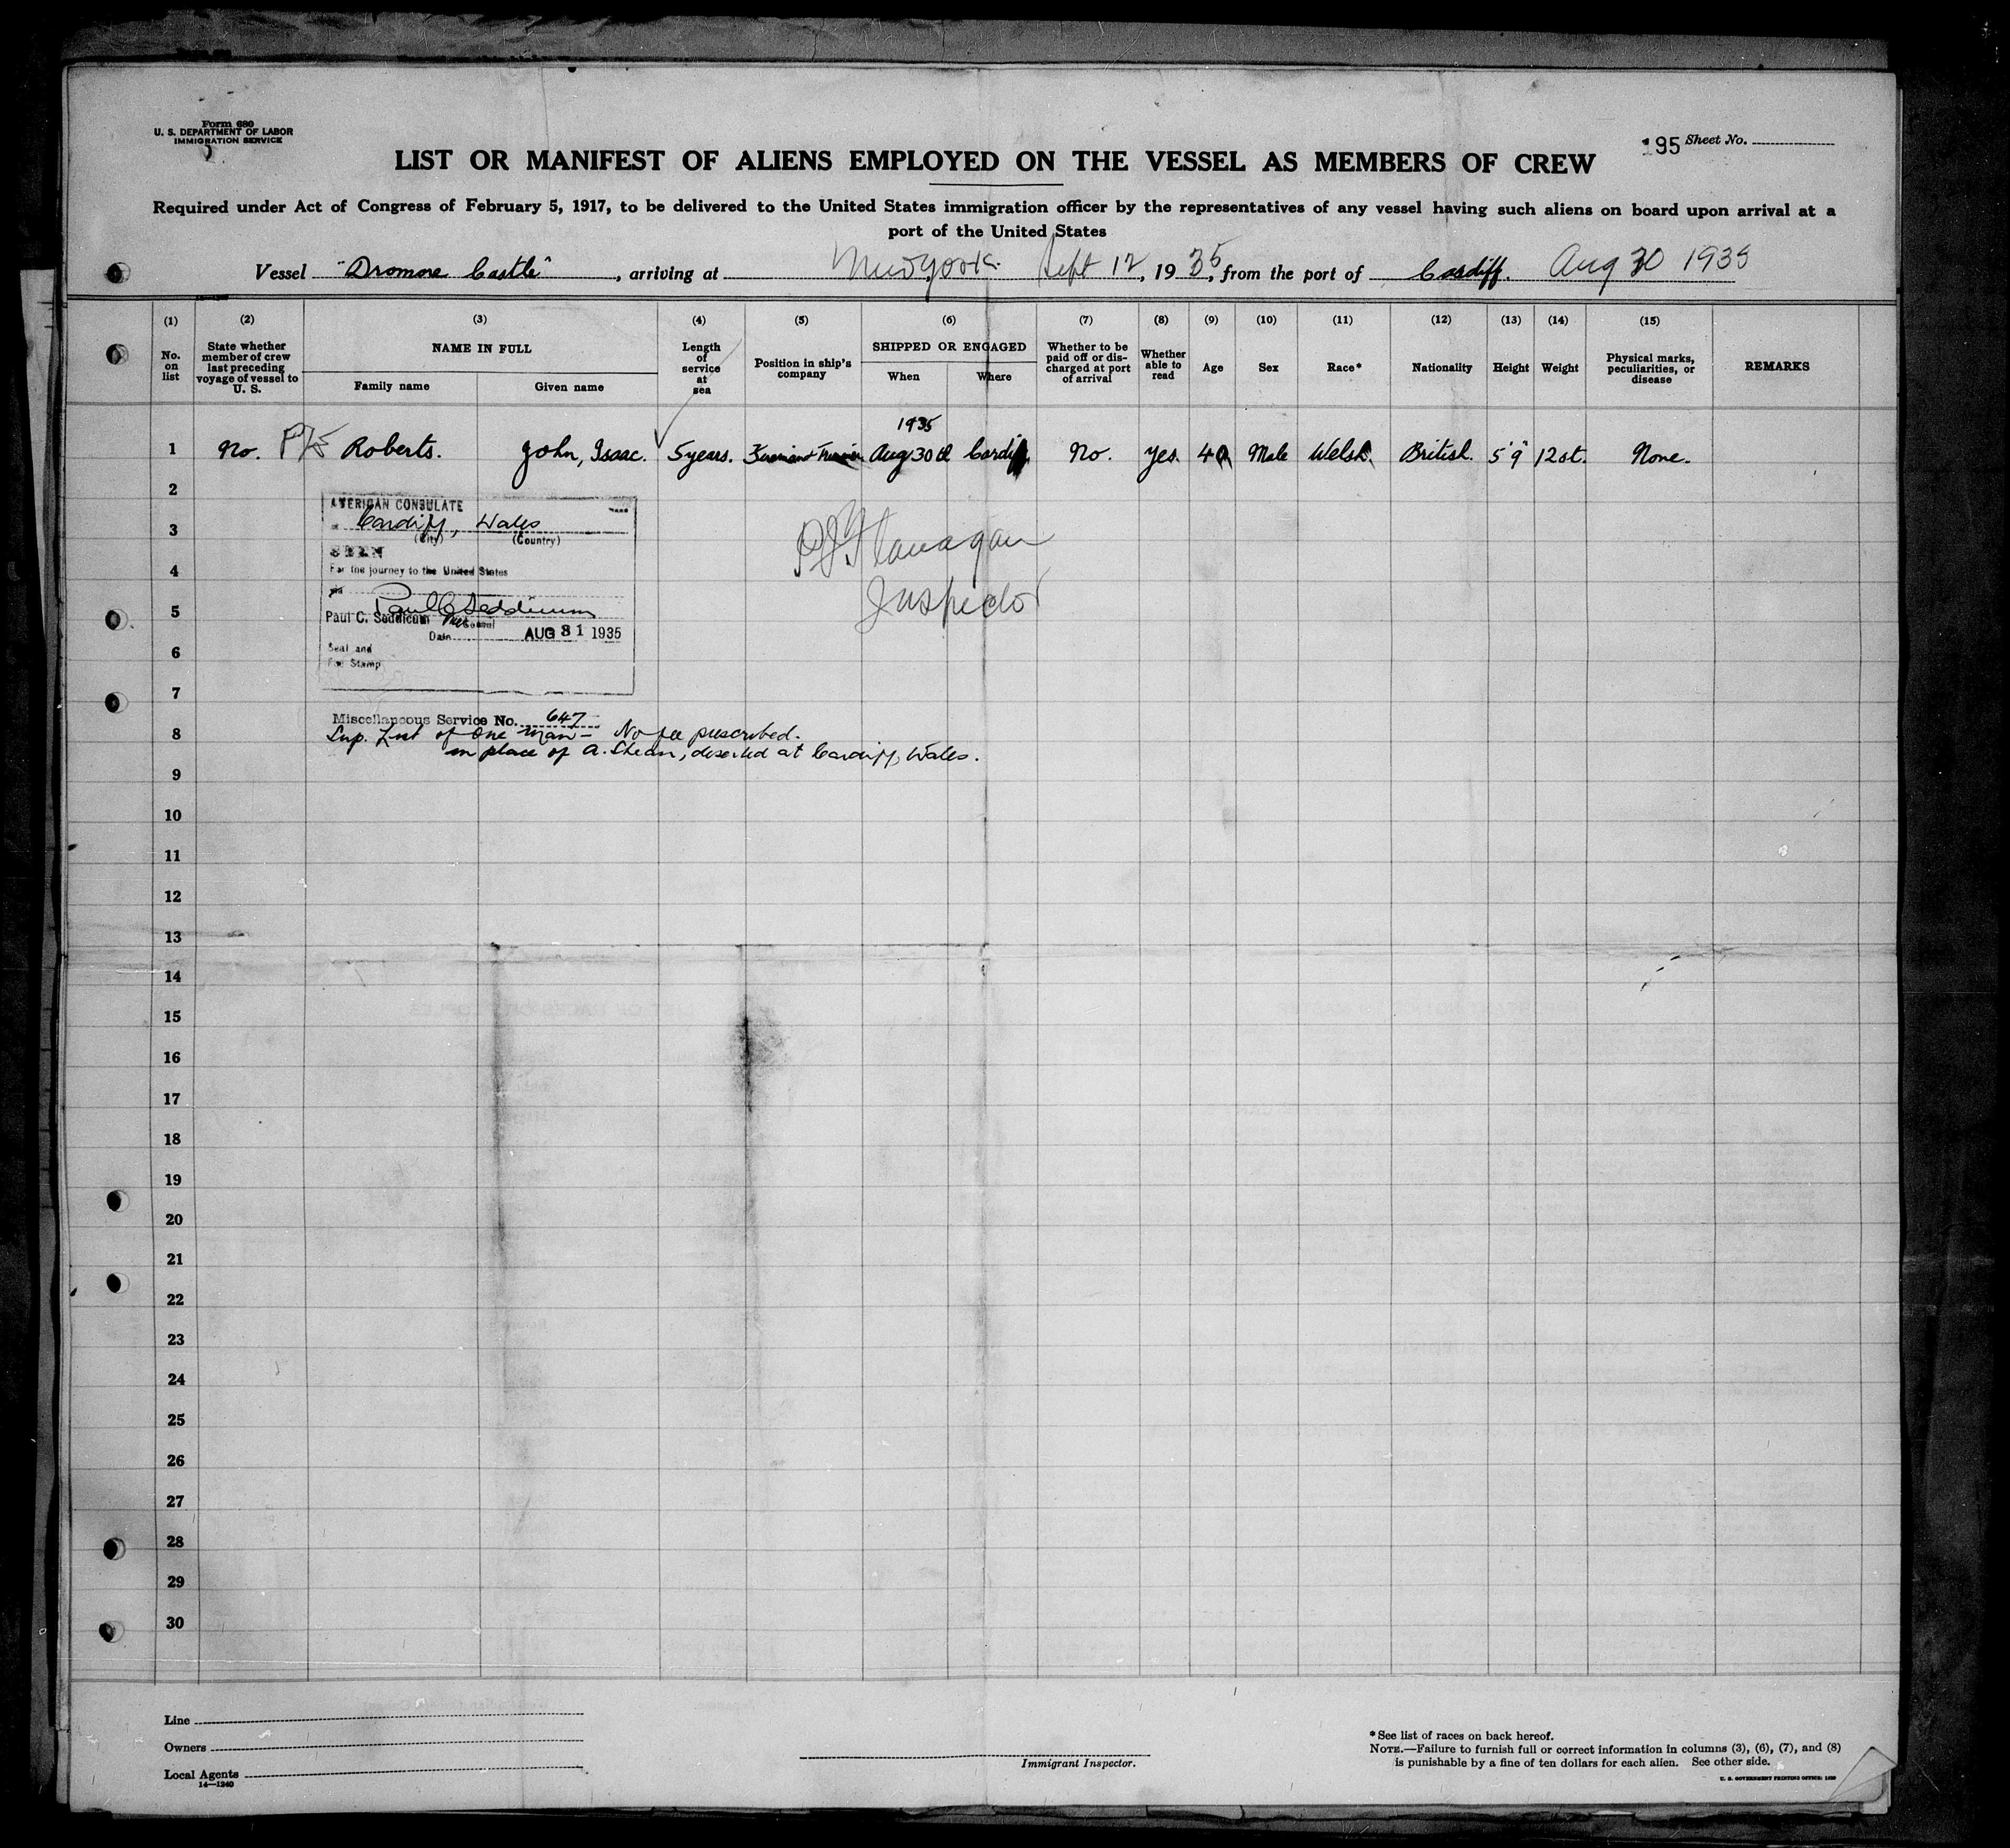 Form 680
U. S. DEPARTMENT OF LABOR
IMMIGRATION SERVICE
195 Sheet No.
LIST OR MANIFEST OF ALIENS EMPLOYED ON THE VESSEL AS MEMBERS OF CREW
Required under Act of Congress of February 5, 1917, to be delivered to the United States immigration officer by the representatives of any vessel having such aliens on board upon arrival at a
port of the United States
Vessel "Dromore Castle", arriving at New York. Sept 12, 1935, from the port of Cardiff. Aug 30 1935
(1) (2) (3) (4) (5) (6) (7) (8) (9) (10) (11) (12) (13) (14) (15)
No. on list
State whether member of crew last preceding voyage of vessel to U. S.
NAME IN FULL
Family name Given name
Length of service at sea
Position in ship's company
SHIPPED OR ENGAGED
When Where
Whether to be paid off or discharged at port of arrival
Whether able to read
Age
Sex
Race*
Nationality
Height
Weight
Physical marks, peculiarities, or disease
REMARKS
1935
1 No. Roberts. John, Isaac. 5 years. Aug 30th Cardiff. No. Yes. 40 Male Welsh. British. 5'9" 12st. None.
2
AMERICAN CONSULATE
3
Cardiff, Wales
(City) (Country)
SEEN
4
For the journey to the United States
via
Paul C. Seddicum
5
Paul C. Seddicum Vice Consul
Date AUG 31 1935
6
Seal and
Fee Stamp
P J Flanagan
Inspector
7
Miscellaneous Service No. 647
8
Sup. List of One Man — No fee prescribed.
in place of A. Shean, deserted at Cardiff, Wales.
9
10
11
12
13
14
15
16
17
18
19
20
21
22
23
24
25
26
27
28
29
30
Line
Owners
Local Agents
14—1240
Immigrant Inspector.
* See list of races on back hereof.
NOTE.—Failure to furnish full or correct information in columns (3), (6), (7), and (8)
is punishable by a fine of ten dollars for each alien. See other side.